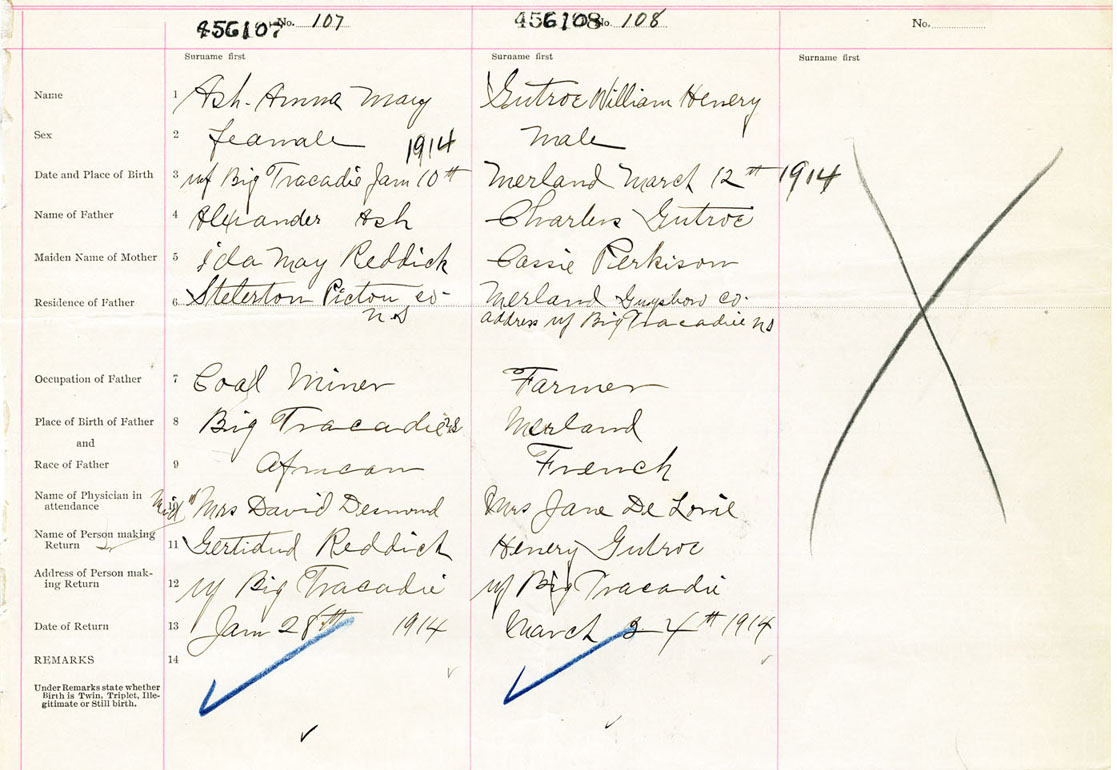 456107 No. 107
456108 No. 108
No.
Surname first
Surname first
Surname first
Name 1 Ash. Anna Mary
Gutroe William Henery
Sex 2 feamale
Male
1914
Date and Place of Birth 3 Big Tracadie Jan 10th
Merland March 12th 1914
Name of Father 4 Alexander Ash
Charles Gutroe
Maiden Name of Mother 5 Ida May Reddick
Cassie Perkison
Residence of Father 6 Stelerton Picton co.
N.S
Merland Guysboro co.
address Big Tracadie NS
Occupation of Father 7 Coal Miner
Farmer
Place of Birth of Father 8 Big Tracadie NS
Merland
and
Race of Father 9 African
French
Name of Physician in
attendance 10 Mid Mrs David Desmond
Mrs Jane De Lorie
Name of Person making
Return 11 Reddick
Henery Gutroe
Address of Person mak-
ing Return 12 Big Tracadie
Big Tracadie
Date of Return 13 Jan 28th 1914
March 4th 1914
REMARKS 14
Under Remarks state whether
Birth is Twin, Triplet, Ille-
gitimate or Still birth.